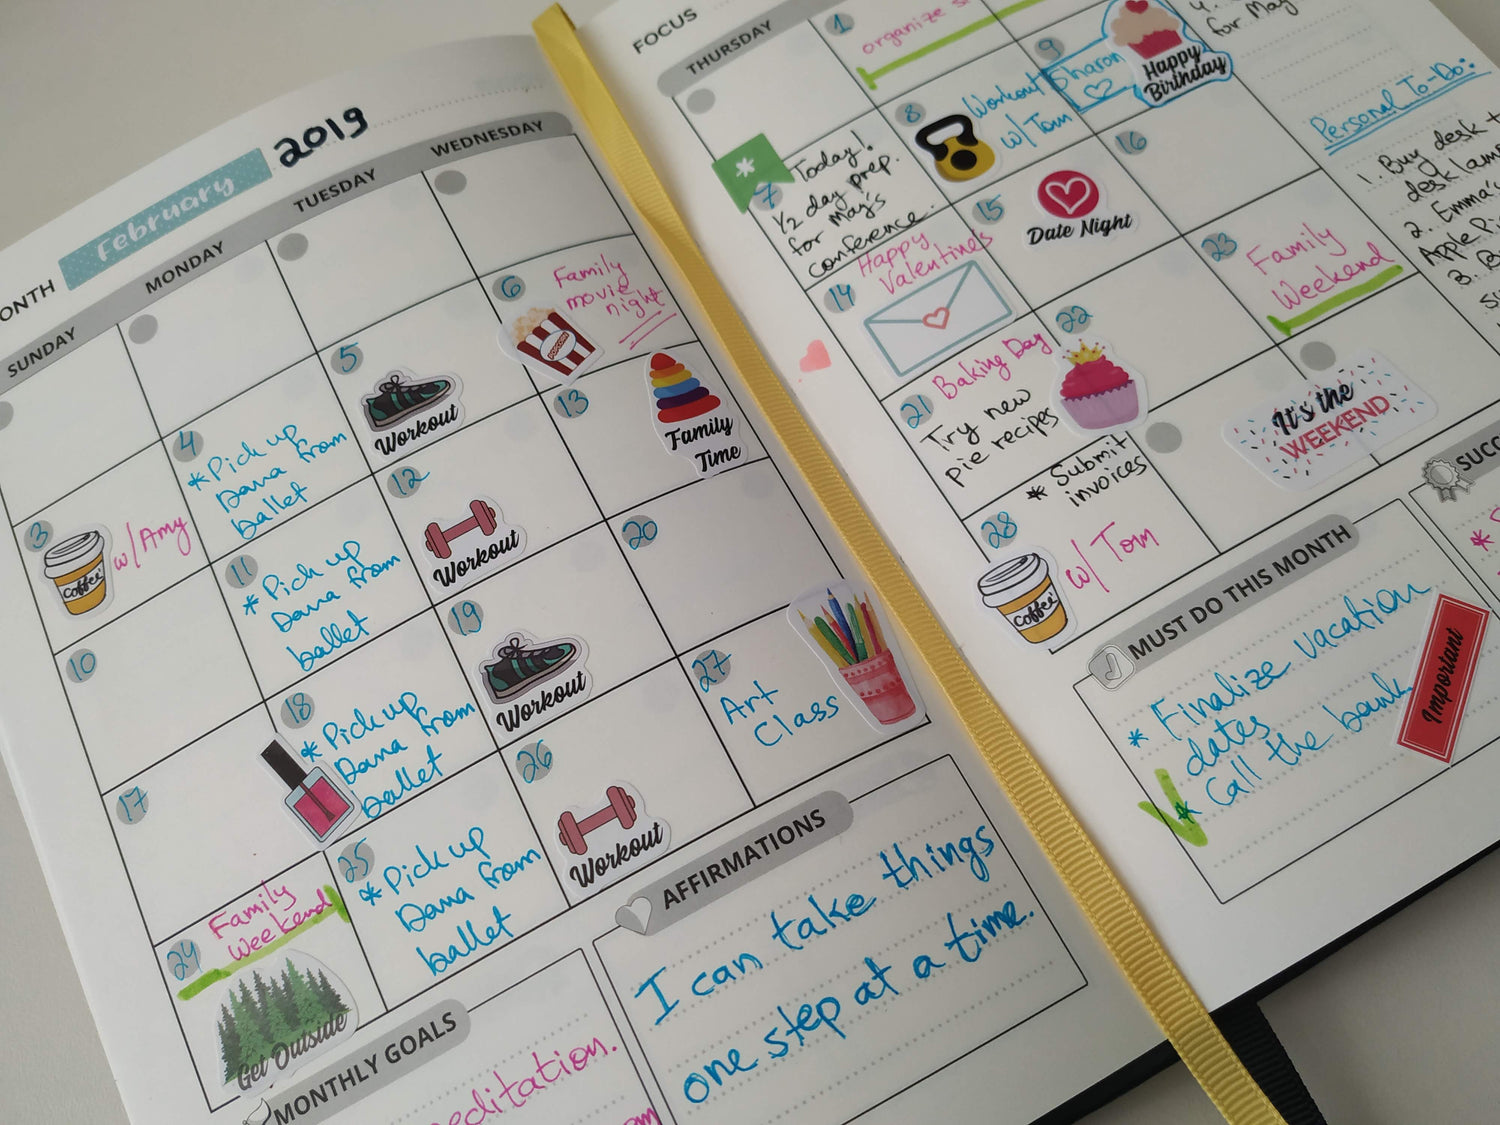 ONTH
February
2019
SUNDAY
MONDAY
TUESDAY
WEDNESDAY
3
Coffee
w/ Amy
4
* Pick up
Dana from
ballet
5
Workout
6
Family
movie
night
10
11
* Pick up
Dana from
ballet
12
Workout
13
Family
Time
17
18
* Pick up
Dana from
ballet
19
Workout
20
24
Family
Weekend
Get Outside
25
* Pick up
Dana from
ballet
26
Workout
27
Art
Class
MONTHLY GOALS
editation.
AFFIRMATIONS
I can take things
one step at a time.
FOCUS
THURSDAY
1
organize
7
Today!
1/2 day prep.
for May's
conference.
8
Workout
w/ Tom
9
Sharon
Happy
Birthday
14
Happy
Valentines
15
Date Night
16
21
Baking Day
Try new
pie recipes
22
* Submit
invoices
23
Family
Weekend
28
Coffee
w/ Tom
It's the
WEEKEND
4.
for May
Personal To-Do:
1. Buy desk +
desk lamp
2. Emma's
Apple Pi
3. B
MUST DO THIS MONTH
* Finalize vacation
dates
* Call the bank
Important
SUCC
*